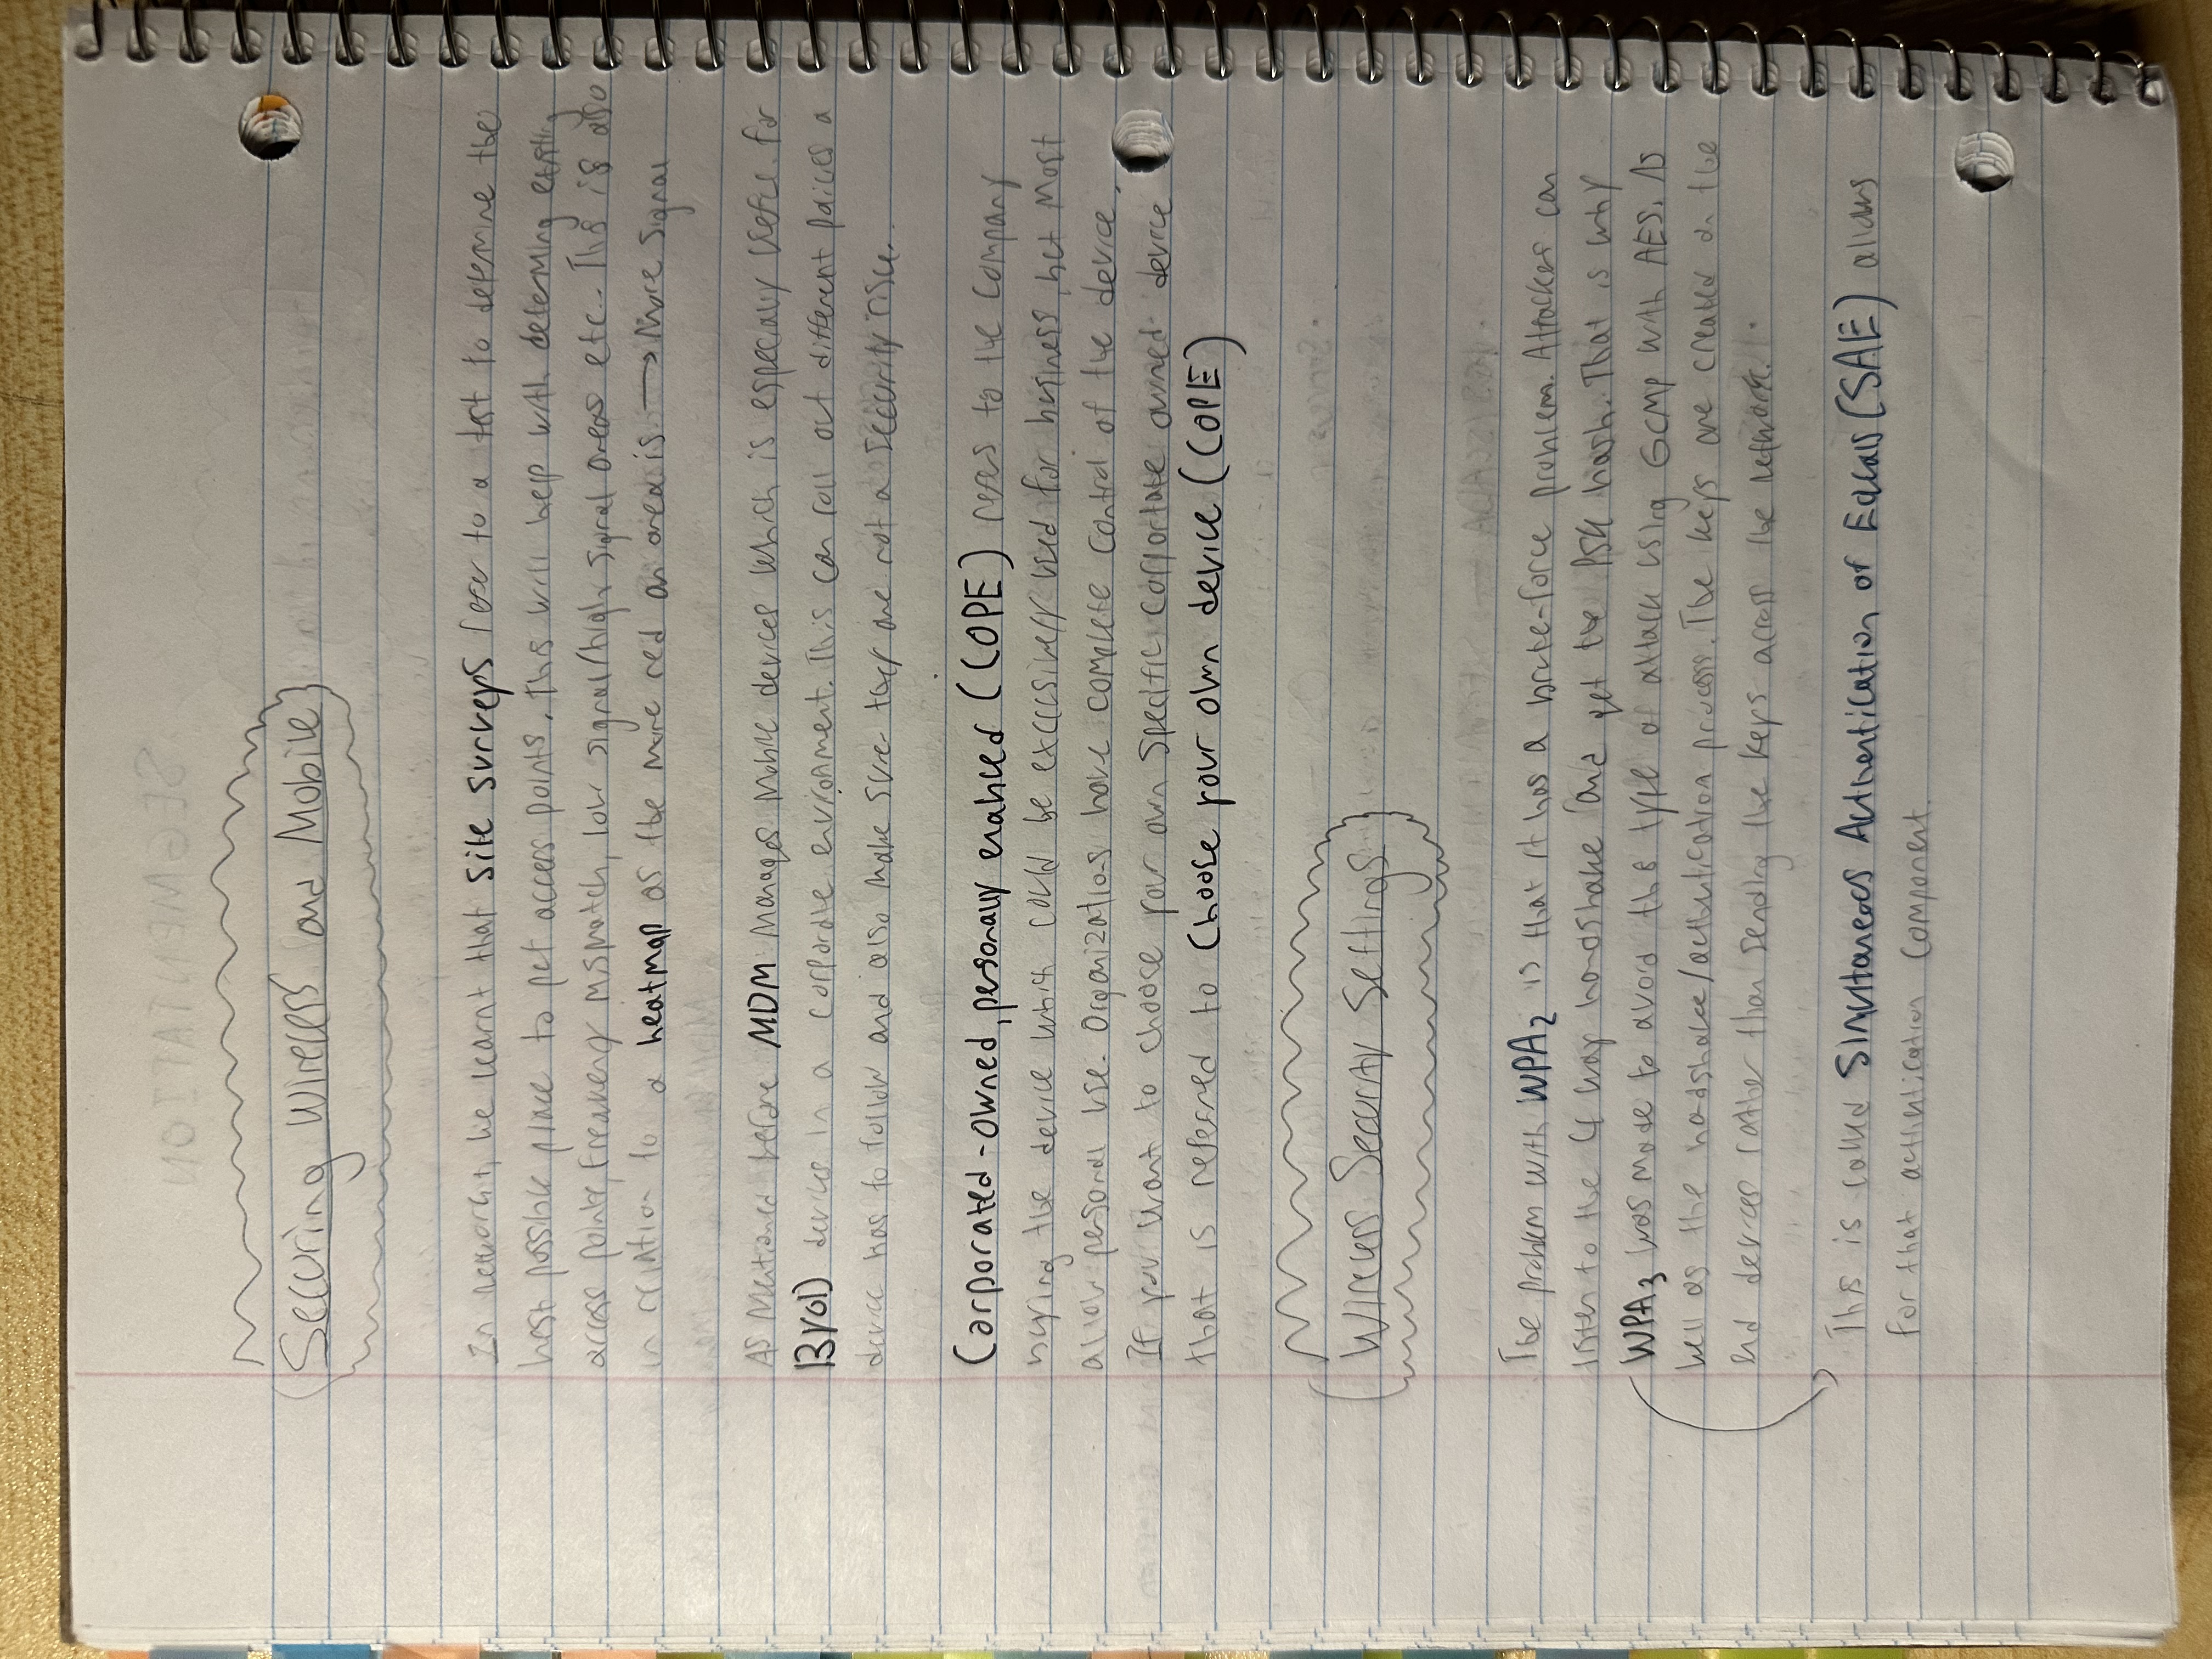 Securing Wireless and Mobile
In networkt, we learnt that site surveys refer to a test to determine the
best possible place to put access points. This will help with determing existing
access points, Frequency mismatch, low signal/high signal areas etc.. This is also
in relation to a heatmap as the more red an area is → More Signal
As Mentioned before MDM Manages Mobile devices which is especially useful for
BYOD devices in a corporate environment. This can roll out different policies a
device has to follow and also make sure they are not a security risk.
Corporated-owned, personally enabled (COPE) refers to the company
buying the device which could be exclusively used for business, but Most
allow personal use. Organizations have complete control of the device.
If you want to choose your own specific corportate owned device
that is referred to Choose your own device (COPE)
Wireless Security Settings
The problem with WPA2 is that it has a brute-force problem. Attackers can
listen to the 4 way handshake and get the PSK hash. That is why
WPA3 was made to avoid this type of attack using GCMP with AES. As
well as the handshake/authentication process. The keys are created on the
end devices rather than sending the keys across the network.
This is called Simultaneous Authentication of Equals (SAE) allows
for that authentication component.